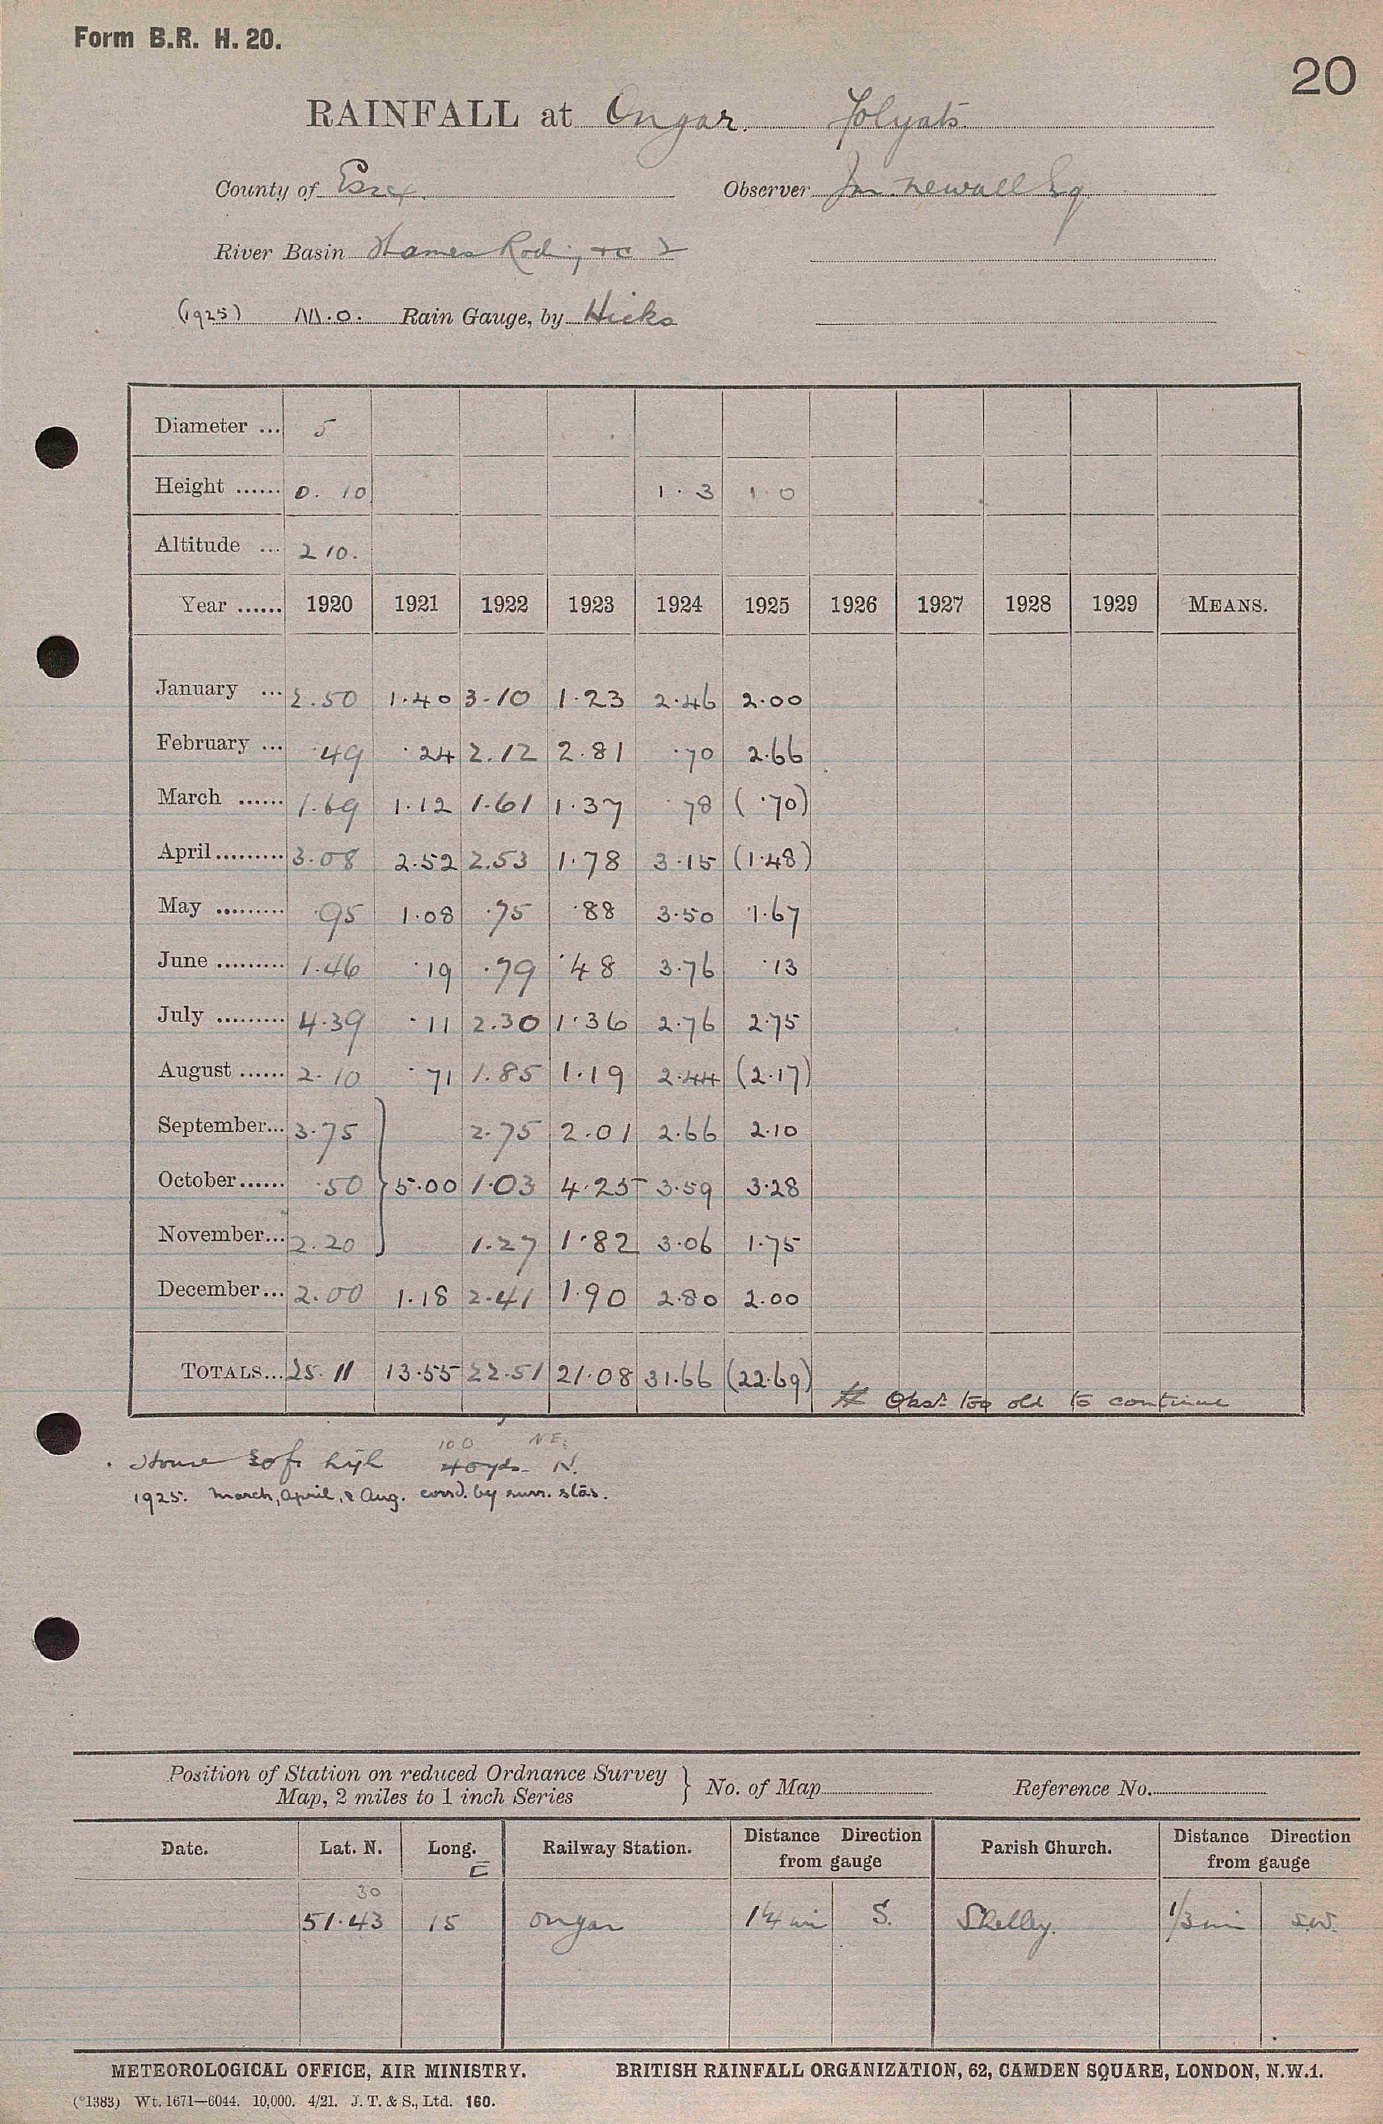 Form B.R. H. 20.
20
RAINFALL at Ongar. Folyats
County of Essex. Observer Jn. Newall Esq
River Basin Thames Roding +c 2
(1925) M.O. Rain Gauge, by Hicks
Diameter ... 5
Height ...... 0. 10 1 . 3 1 . 0
Altitude ... 210.
Year ...... 1920 1921 1922 1923 1924 1925 1926 1927 1928 1929 MEANS.
January ... 2.50 1.40 3.10 1.23 2.46 2.00
February ... .49 .24 2.12 2.81 .70 2.66
March ...... 1.69 1.12 1.61 1.37 .78 (.70)
April ......... 3.08 2.52 2.53 1.78 3.15 (1.48)
May ......... .95 1.08 .75 .88 3.50 1.67
June ......... 1.46 .19 .79 .48 3.76 .13
July ......... 4.39 .11 2.30 1.36 2.76 2.75
August ...... 2.10 .71 1.85 1.19 2.44 (2.17)
September... 3.75 2.75 2.01 2.66 2.10
October...... .50 } 5.00 1.03 4.25 3.59 3.28
November... 2.20 1.27 1.82 3.06 1.75
December... 2.00 1.18 2.41 1.90 2.80 2.00
TOTALS... 25.11 13.55 22.51 21.08 31.66 (22.69)
# Obsr. too old to continue
100 NE.
House 30 ft high 40 yds. N.
1925. March, April, & Aug. corrd. by surr. stas.
Position of Station on reduced Ordnance Survey
Map, 2 miles to 1 inch Series } No. of Map Reference No.
Date. Lat. N. Long. E Railway Station. Distance Direction from gauge Parish Church. Distance Direction from gauge
30
51.43 15 Ongar 1¼ mi S. Shelley. 1/3 mi S.W.
METEOROLOGICAL OFFICE, AIR MINISTRY. BRITISH RAINFALL ORGANIZATION, 62, CAMDEN SQUARE, LONDON, N.W.1.
(*1383) Wt. 1671—6044. 10,000. 4/21. J. T. & S., Ltd. 160.